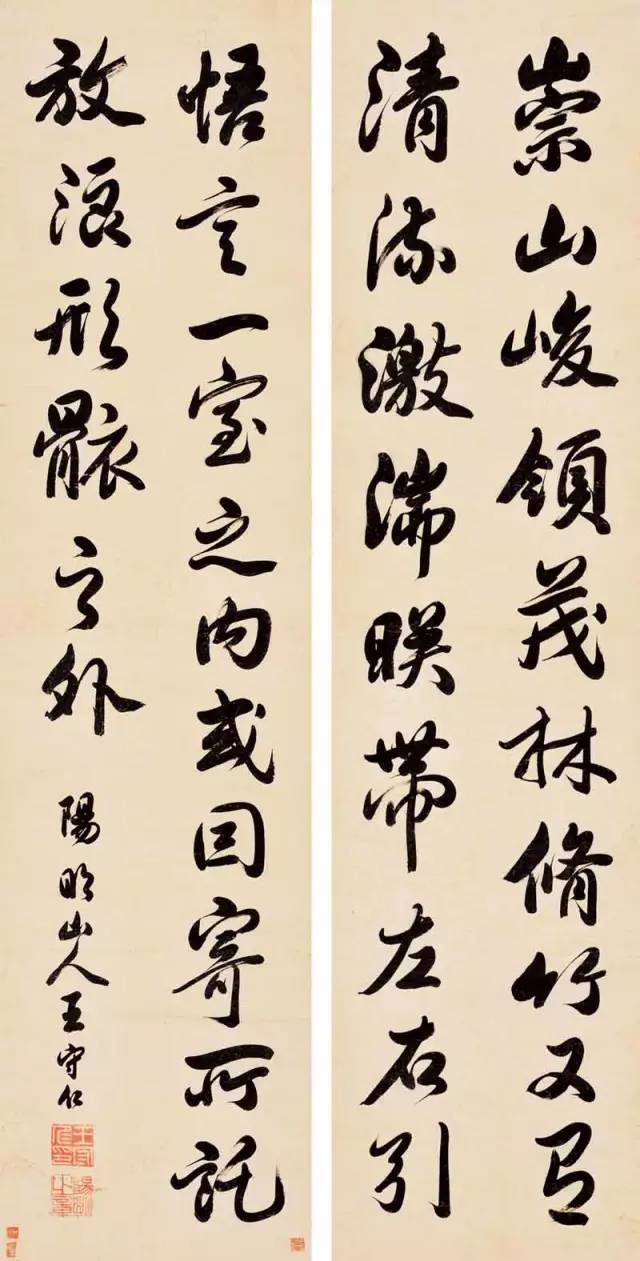 崇山峻領茂林脩竹又有
清流激湍暎帶左右引
悟言一室之內或因寄所託
放浪形骸之外
陽明山人王守仁